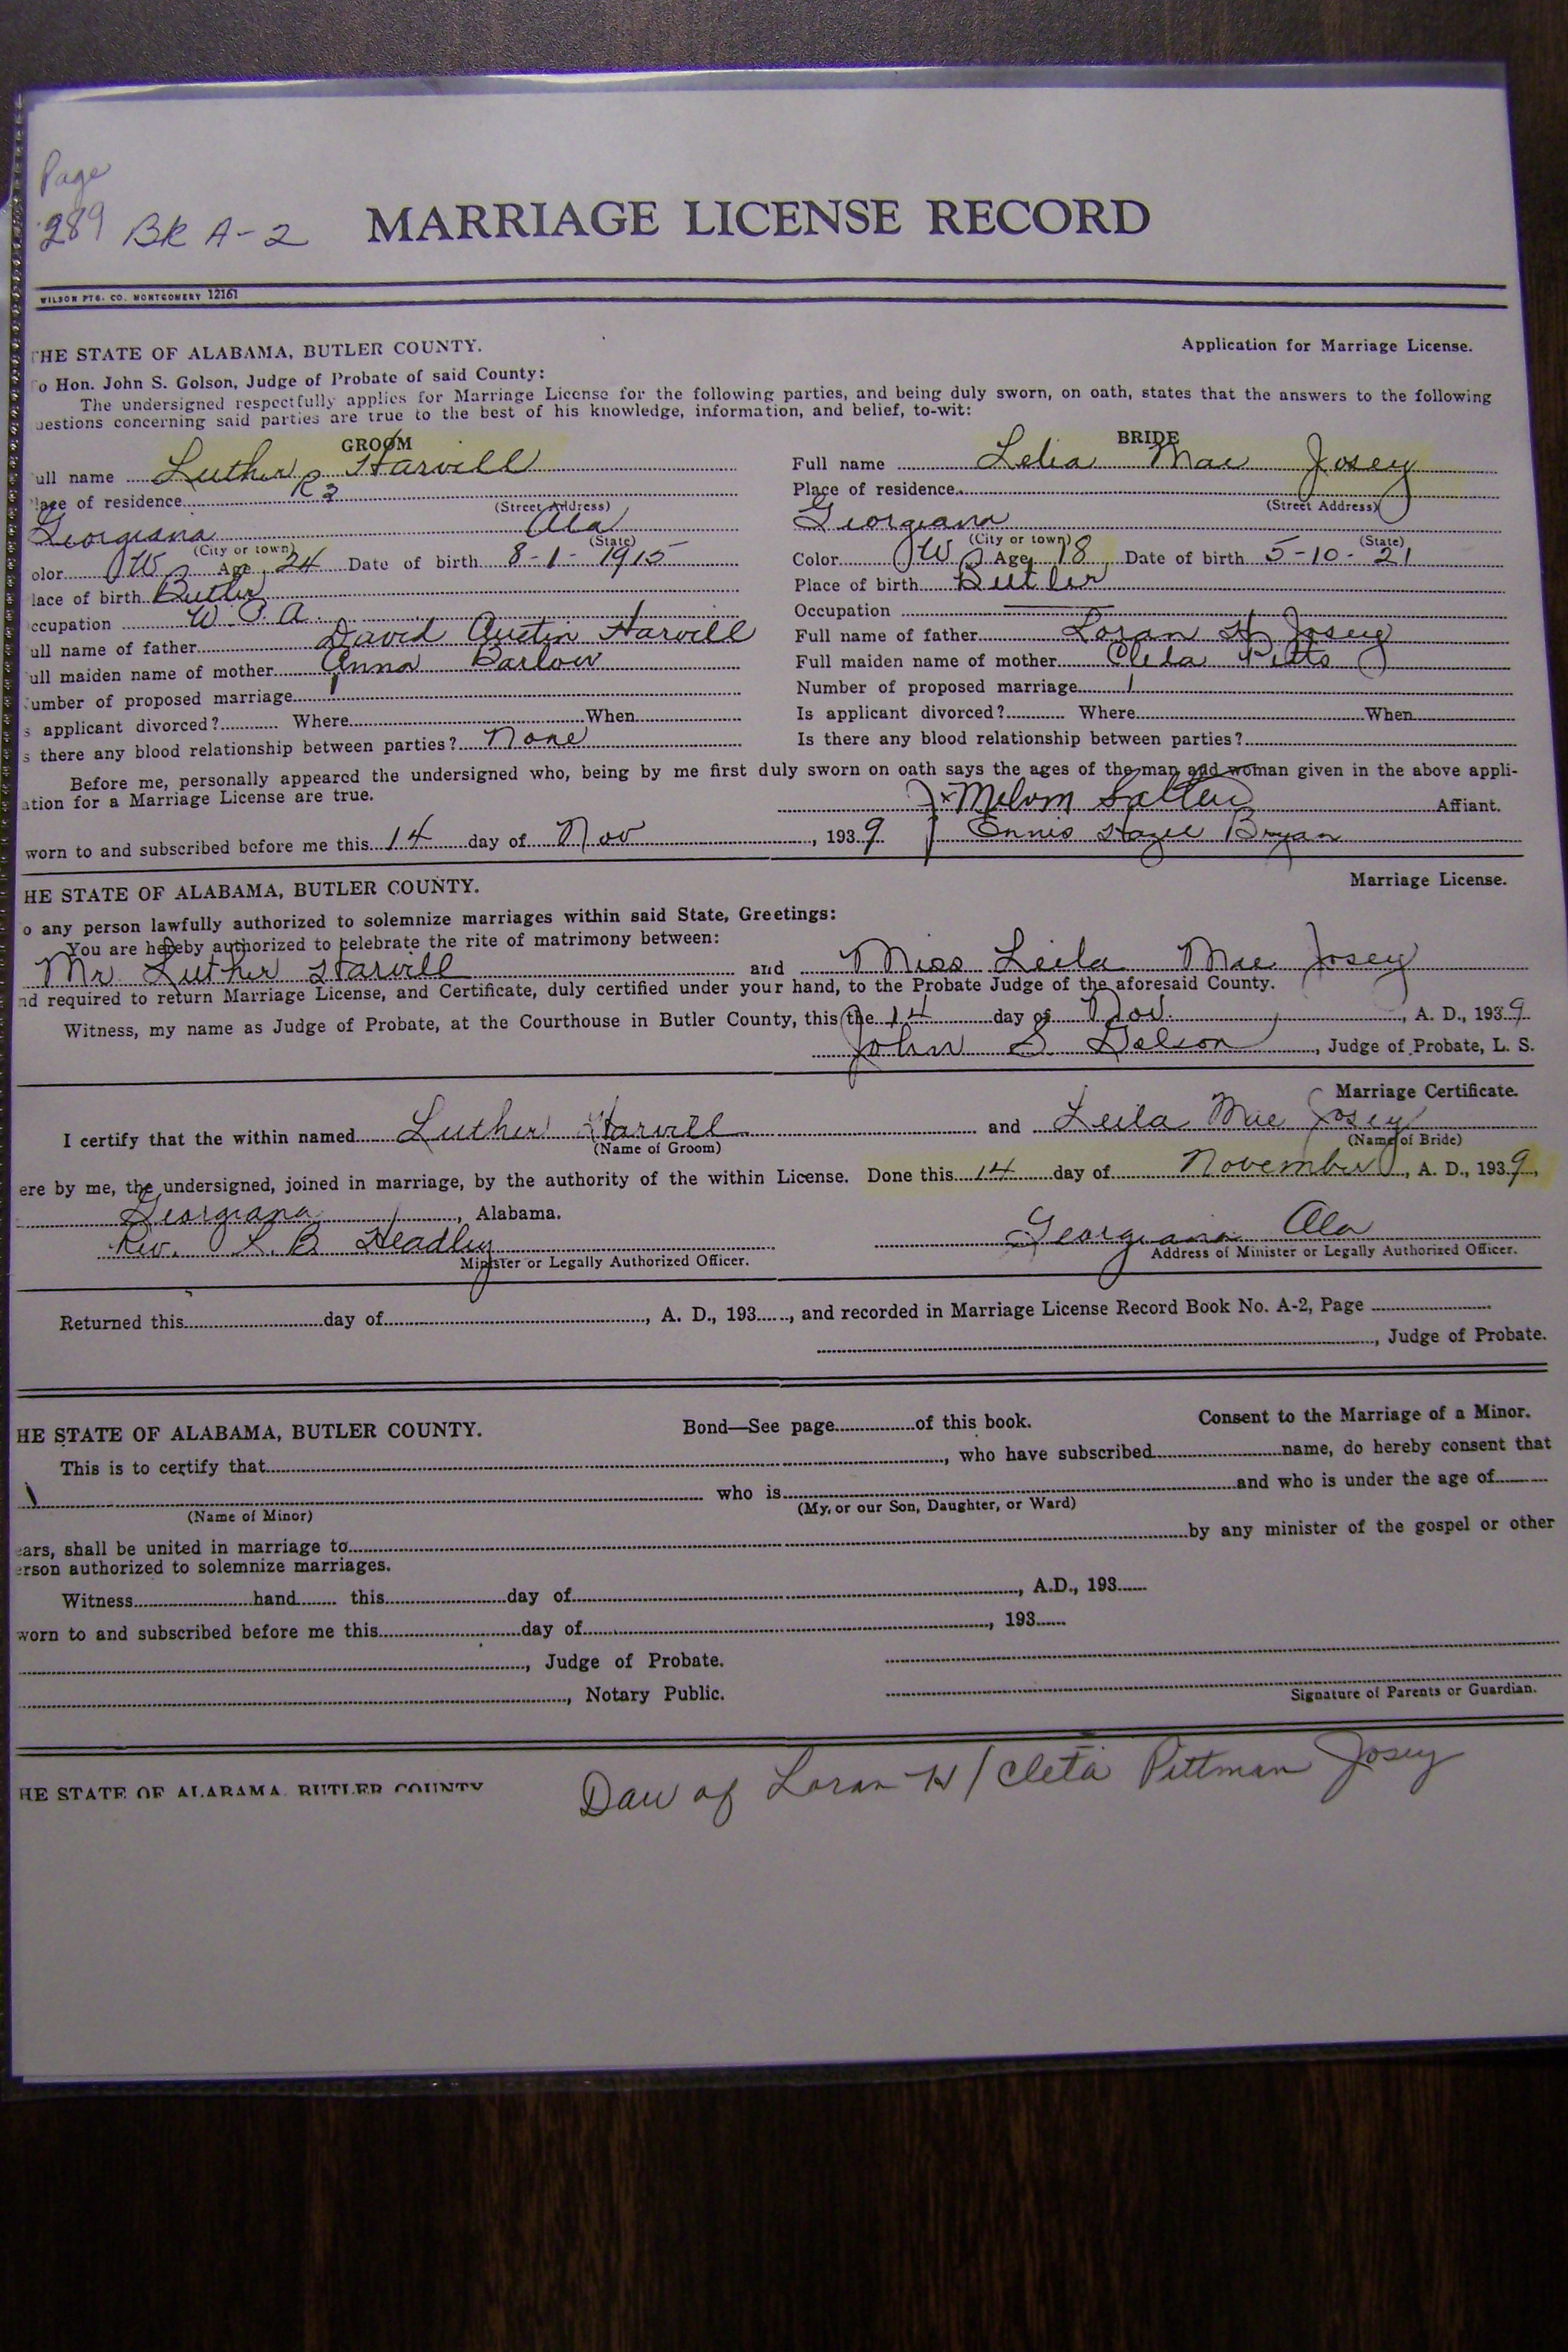 Page
289 BK A-2 MARRIAGE LICENSE RECORD
WILSON PTG. CO. MONTGOMERY 12161
THE STATE OF ALABAMA, BUTLER COUNTY. Application for Marriage License.
o Hon. John S. Golson, Judge of Probate of said County:
The undersigned respectfully applies for Marriage License for the following parties, and being duly sworn, on oath, states that the answers to the following
uestions concerning said parties are true to the best of his knowledge, information, and belief, to-wit:
GROOM BRIDE
ull name Luther Harvell Full name Lelia Mae Josey
lace of residence R2 Place of residence
(Street Address) (Street Address)
Georgiana Ala Georgiana
(City or town) (State) (City or town) (State)
olor W Age 24 Date of birth 8-1-1915 Color W Age 18 Date of birth 5-10-21
lace of birth Butler Place of birth Butler
ccupation W.P.A. Occupation
ull name of father David Austin Harvell Full name of father Loran H Josey
ull maiden name of mother Anna Barlow Full maiden name of mother Cleta Pitts
umber of proposed marriage 1 Number of proposed marriage 1
s applicant divorced? Where When Is applicant divorced? Where When
s there any blood relationship between parties? None Is there any blood relationship between parties?
Before me, personally appeared the undersigned who, being by me first duly sworn on oath says the ages of the man and woman given in the above appli-
ation for a Marriage License are true. x Melvin Salter Affiant.
worn to and subscribed before me this 14 day of Nov, 1939 Ennis Hazel Bryan
HE STATE OF ALABAMA, BUTLER COUNTY. Marriage License.
o any person lawfully authorized to solemnize marriages within said State, Greetings:
You are hereby authorized to celebrate the rite of matrimony between:
Mr Luther Harvell and Miss Leila Mae Josey
nd required to return Marriage License, and Certificate, duly certified under your hand, to the Probate Judge of the aforesaid County.
Witness, my name as Judge of Probate, at the Courthouse in Butler County, this the 14 day of Nov., A. D., 1939
John S. Golson, Judge of Probate, L. S.
Marriage Certificate.
I certify that the within named Luther Harvell and Leila Mae Josey
(Name of Groom) (Name of Bride)
ere by me, the undersigned, joined in marriage, by the authority of the within License. Done this 14 day of November, A. D., 1939,
Georgiana, Alabama.
Rev. L. B. Headley Georgiana Ala
Minister or Legally Authorized Officer. Address of Minister or Legally Authorized Officer.
Returned this day of, A. D., 193, and recorded in Marriage License Record Book No. A-2, Page
, Judge of Probate.
HE STATE OF ALABAMA, BUTLER COUNTY. Bond—See page of this book. Consent to the Marriage of a Minor.
This is to certify that, who have subscribed name, do hereby consent that
who is and who is under the age of
(Name of Minor) (My, or our Son, Daughter, or Ward)
ears, shall be united in marriage to by any minister of the gospel or other
erson authorized to solemnize marriages.
Witness hand this day of, A.D., 193
worn to and subscribed before me this day of, 193
, Judge of Probate.
, Notary Public. Signature of Parents or Guardian.
HE STATE OF ALABAMA, BUTLER COUNTY Dau of Loran H / Cleta Pittman Josey